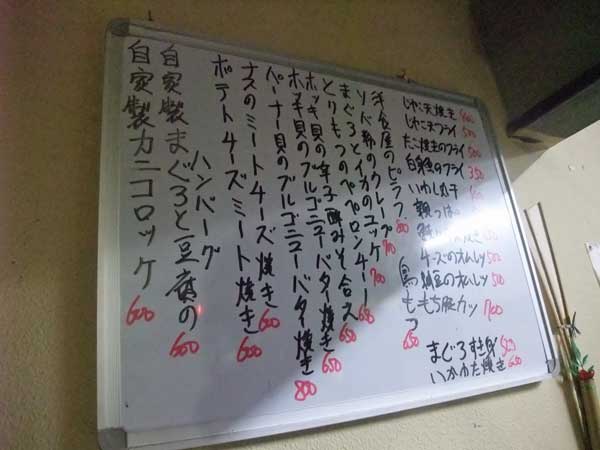 じゃこ天焼き 400
じゃこ天フライ 500
たこ焼きのフライ 500
白身のフライ 350
いわし丸干
チーズのオムレツ 500
納豆のオムレツ 500
もち豚カツ 700
まぐろすき身
いかわた焼き 650
洋食屋のピラフ 800
ソバ粉のクレープ 700
まぐろとイカのユッケ 700
とりもつのペペロンチーノ 650
ホッキ貝の辛子酢みそ合え 650
ホッキ貝のブルゴニューバタ焼き 650
パーナ貝のブルゴニューバタ焼き 800
ナスのミートチーズ焼き 600
ポテトチーズミート焼き 600
自家製まぐろと豆腐の
ハンバーグ 600
自家製カニコロッケ 600